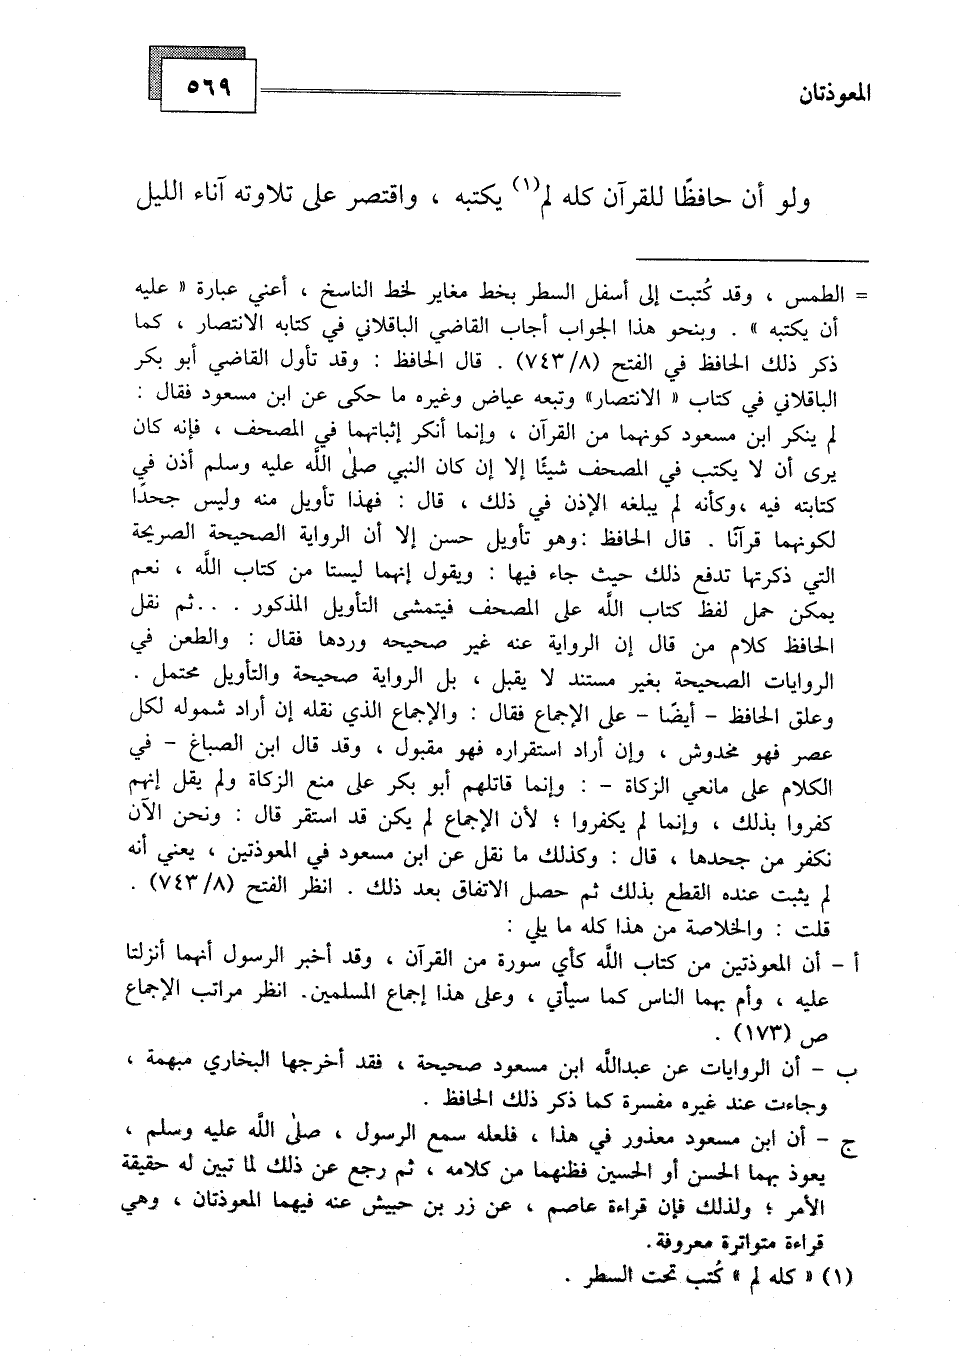 المعوذتان
٥٦٩
ولو أن حافظًا للقرآن كله لم(١) يكتبه ، واقتصر على تلاوته آناء الليل
= الطمس ، وقد كُتبت إلى أسفل السطر بخط مغاير لخط الناسخ ، أعني عبارة « عليه
أن يكتبه » . وبنحو هذا الجواب أجاب القاضي الباقلاني في كتابه الانتصار ، كما
ذكر ذلك الحافظ في الفتح (٧٤٣/٨) . قال الحافظ : وقد تأول القاضي أبو بكر
الباقلاني في كتاب « الانتصار» وتبعه عياض وغيره ما حكى عن ابن مسعود فقال :
لم ينكر ابن مسعود كونهما من القرآن ، وإنما أنكر إثباتهما في المصحف ، فإنه كان
يرى أن لا يكتب في المصحف شيئًا إلا إن كان النبي صلى الله عليه وسلم أذن في
كتابته فيه ،وكأنه لم يبلغه الإذن في ذلك ، قال : فهذا تأويل منه وليس جحدًا
لكونهما قرآنًا . قال الحافظ :وهو تأويل حسن إلا أن الرواية الصحيحة الصريحة
التي ذكرتها تدفع ذلك حيث جاء فيها : ويقول إنهما ليستا من كتاب الله ، نعم
يمكن حمل لفظ كتاب الله على المصحف فيتمشى التأويل المذكور . ..ثم نقل
الحافظ كلام من قال إن الرواية عنه غير صحيحه وردها فقال : والطعن في
الروايات الصحيحة بغير مستند لا يقبل ، بل الرواية صحيحة والتأويل محتمل .
وعلق الحافظ - أيضًا - على الإجماع فقال : والإجماع الذي نقله إن أراد شموله لكل
عصر فهو مخدوش ، وإن أراد استقراره فهو مقبول ، وقد قال ابن الصباغ - في
الكلام على مانعي الزكاة - : وإنما قاتلهم أبو بكر على منع الزكاة ولم يقل إنهم
كفروا بذلك ، وإنما لم يكفروا ؛ لأن الإجماع لم يكن قد استقر قال : ونحن الآن
نكفر من جحدها ، قال : وكذلك ما نقل عن ابن مسعود في المعوذتين ، يعني أنه
لم يثبت عنده القطع بذلك ثم حصل الاتفاق بعد ذلك . انظر الفتح (٧٤٣/٨) .
قلت : والخلاصة من هذا كله ما يلي :
أ - أن المعوذتين من كتاب الله كأي سورة من القرآن ، وقد أخبر الرسول أنهما أنزلتا
عليه ، وأم بهما الناس كما سيأتي ، وعلى هذا إجماع المسلمين. انظر مراتب الإجماع
ص (١٧٣) .
ب - أن الروايات عن عبدالله ابن مسعود صحيحة ، فقد أخرجها البخاري مبهمة ،
وجاءت عند غيره مفسرة كما ذكر ذلك الحافظ .
ج - أن ابن مسعود معذور في هذا ، فلعله سمع الرسول ، صلى الله عليه وسلم ،
يعوذ بهما الحسن أو الحسين فظنهما من كلامه ، ثم رجع عن ذلك لما تبين له حقيقة
الأمر ؛ ولذلك فإن قراءة عاصم ، عن زر بن حبيش عنه فيهما المعوذتان ، وهي
قراءة متواترة معروفة.
(١) « كله لم » كُتب تحت السطر .